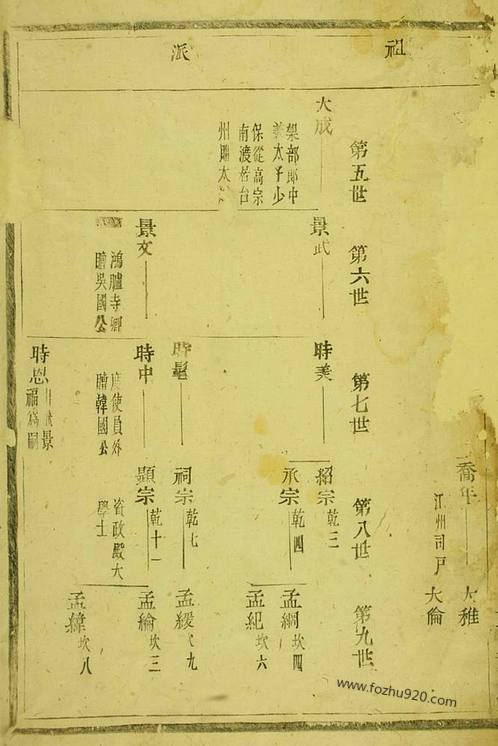 祖
派
喬年
江州司戶
大雅
大倫
第五世
第六世
第七世
第八世
第九世
大成
郎中
太子少
保從高宗
南渡居台
州贈太
景武
景文
鴻臚寺卿
贈吳國公
時美
時
時中
度使員外
贈韓國公
時恩
景
福為嗣
紹宗 乾三
承宗 乾四
祠宗 乾七
顯宗 乾十一
資政殿大
學士
孟綱 坎四
孟紀 坎六
孟緩 九
孟綸 坎三
孟緯 坎八
www.fozhu920.com